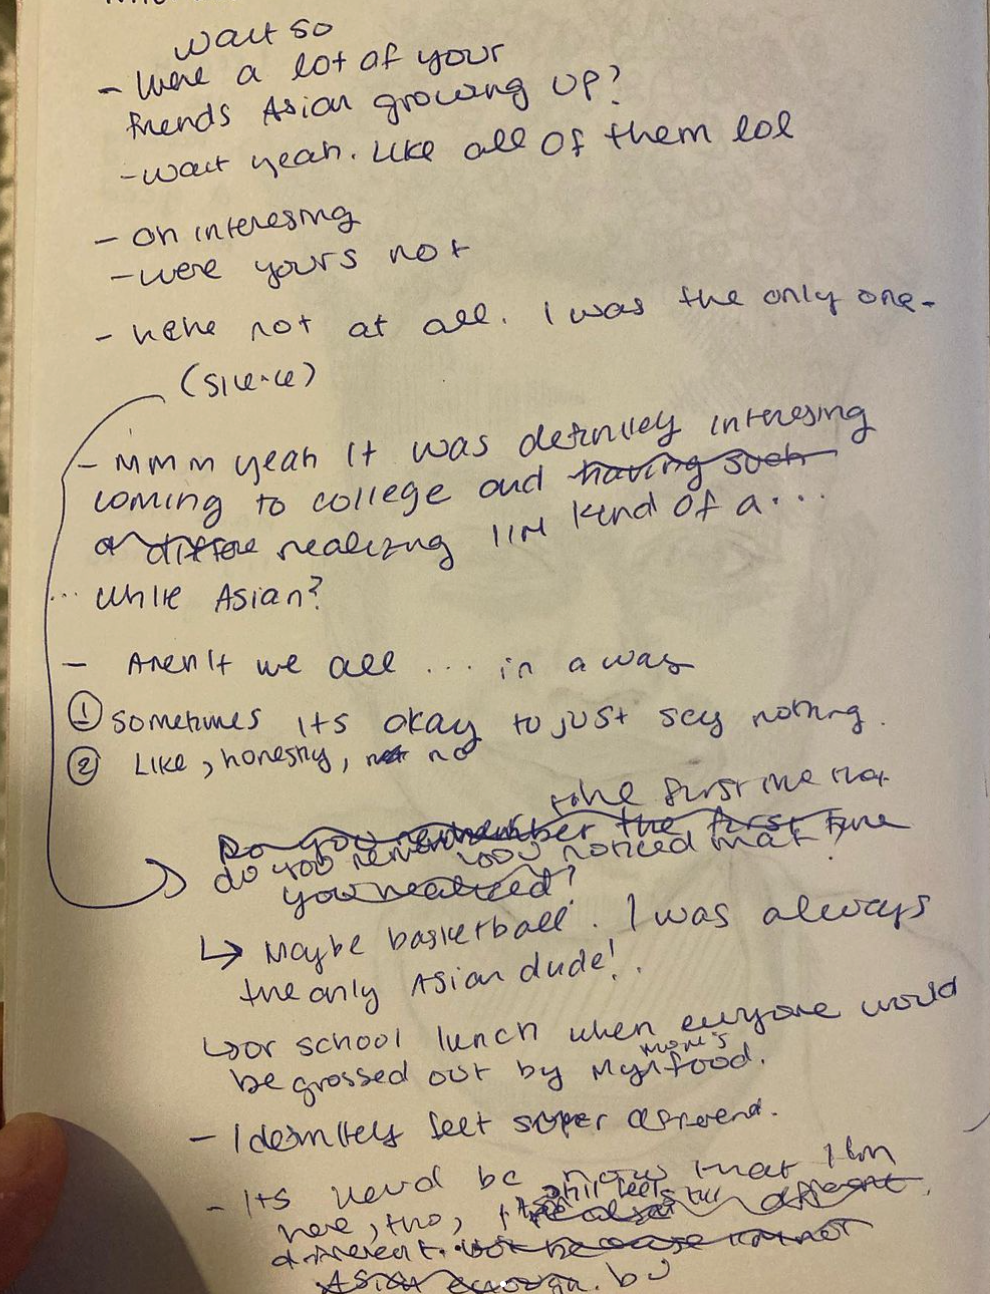 wait so
- Were a lot of your
friends Asian growing up?
- wait yeah. Like all of them lol
- oh interesing
- were yours not
- hehe not at all. I was the only one-
(silence)
- MMM yeah It was definitley interesing
coming to college and having such
a differe realizing I'm kind of a...
... white Asian?
- Aren't we all ... in a way
① sometimes its okay to just say nothing.
② Like, honestly, not no
the first time that
Do you remember the first time
do you remember you noticed that?
you realized?
↳ Maybe basketball. I was always
the only Asian dude!
↳ or school lunch when everyone would
mom's
be grossed out by my food.
- I definitely felt super different.
- Its weird bc now that I'm
here, tho, I still feels
different. but because im not
Asian enough. bc